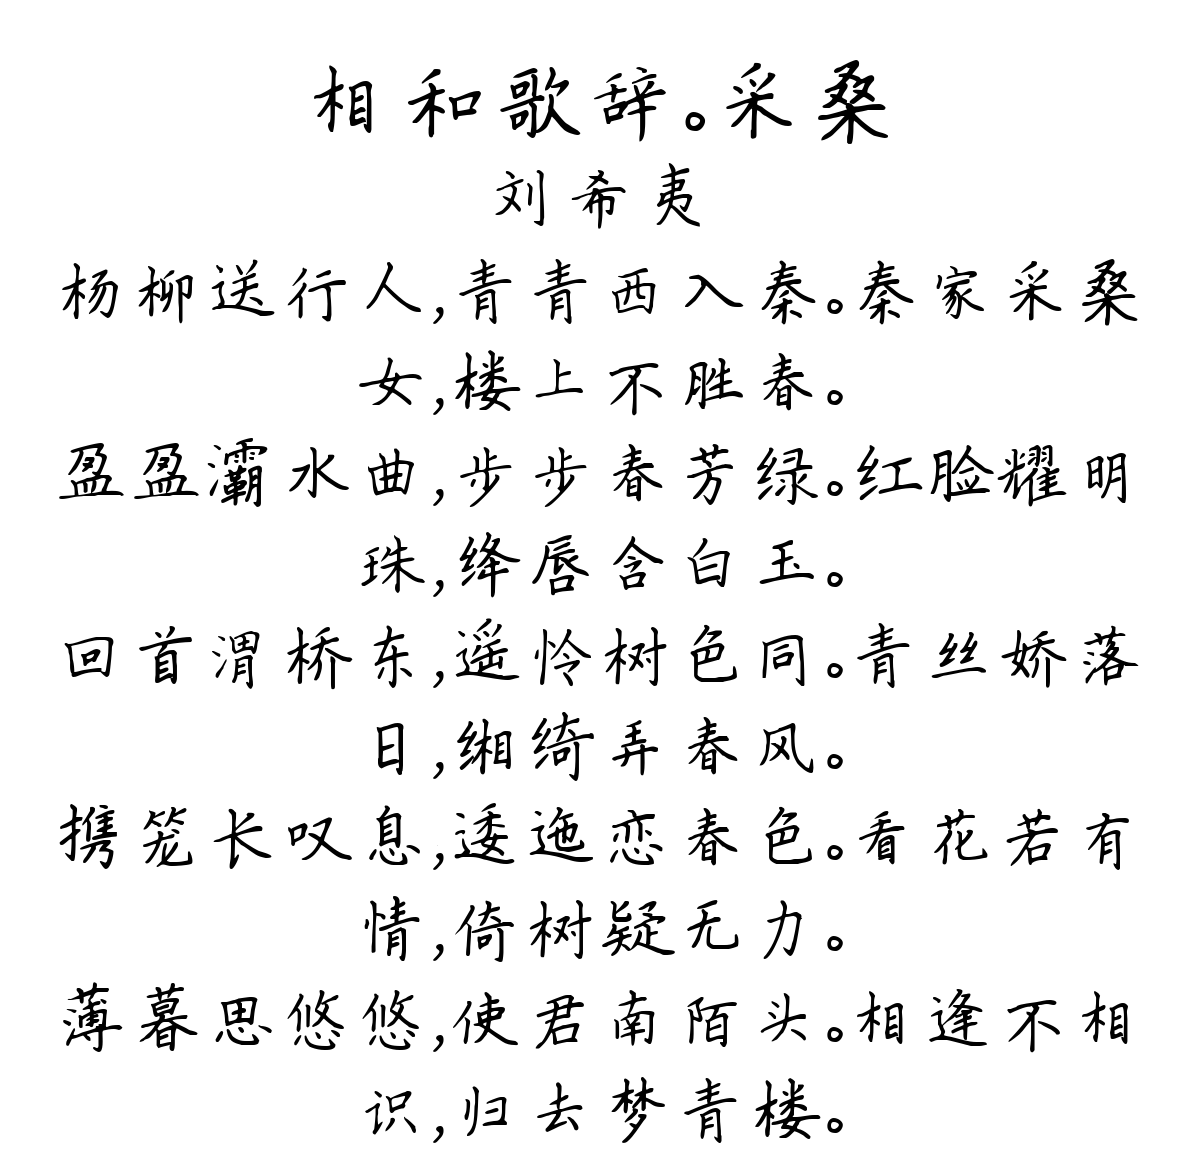 相和歌辞。采桑
刘希夷
杨柳送行人,青青西入秦。秦家采桑
女,楼上不胜春。
盈盈灞水曲,步步春芳绿。红脸耀明
珠,绛唇含白玉。
回首渭桥东,遥怜树色同。青丝娇落
日,缃绮弄春风。
携笼长叹息,逶迤恋春色。看花若有
情,倚树疑无力。
薄暮思悠悠,使君南陌头。相逢不相
识,归去梦青楼。